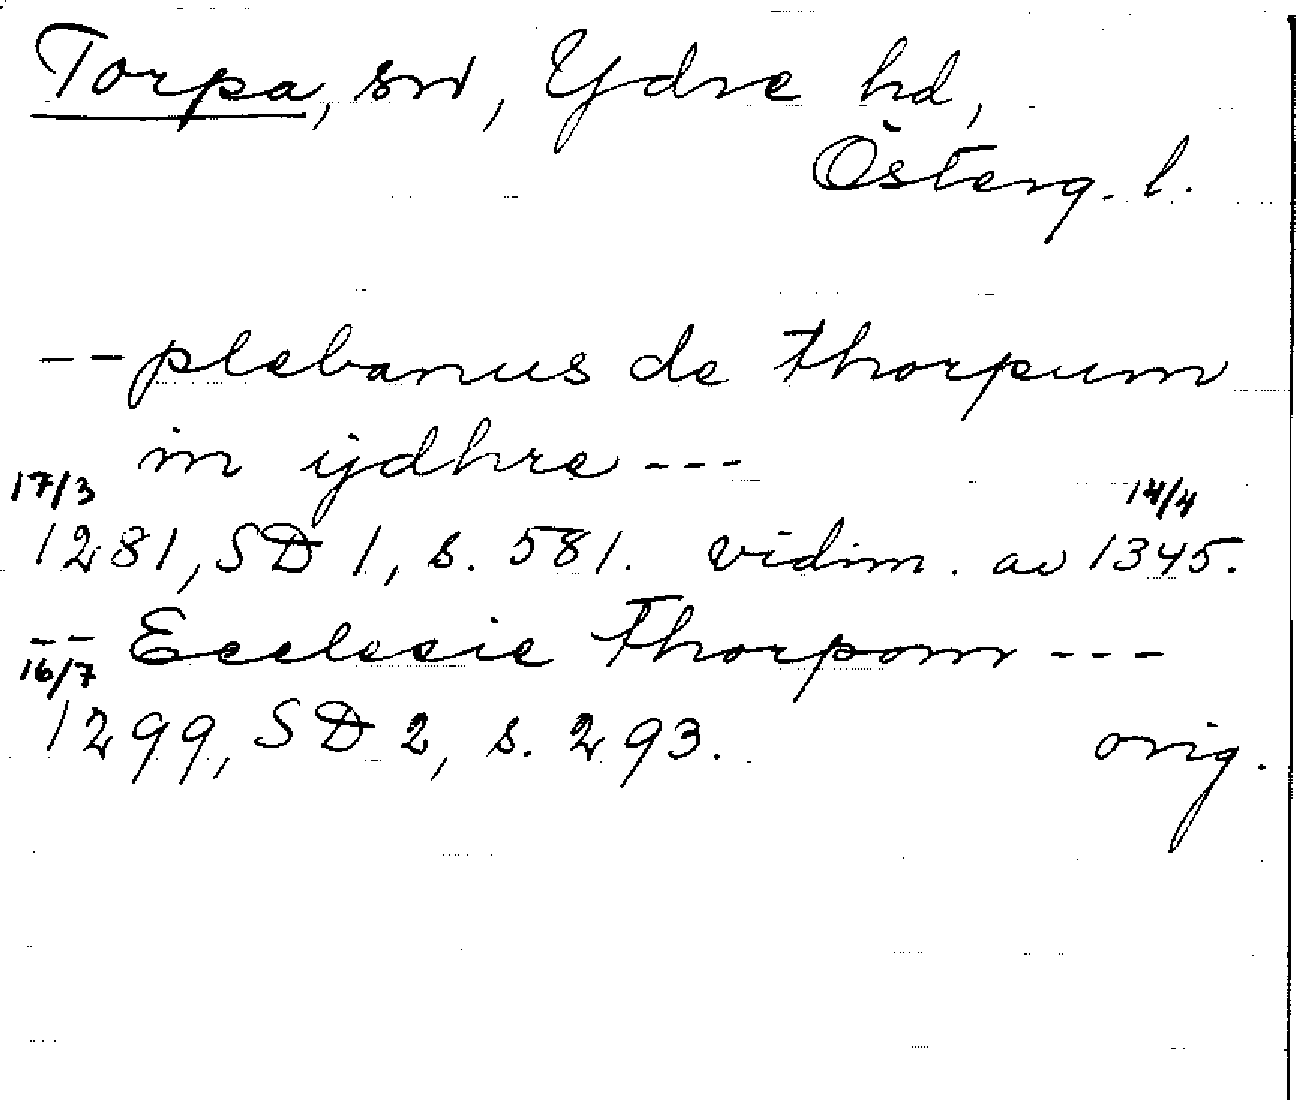 Torpa, sn, Ydre hd,
Österg. l.
-- plebanus de thorpum
in ijdhre ---
17/3 14/4
1281, SD 1, s. 581. vidim. av 1345.
-- Ecclesie Thorpom ---
16/7
1299, SD 2, s. 293. orig.